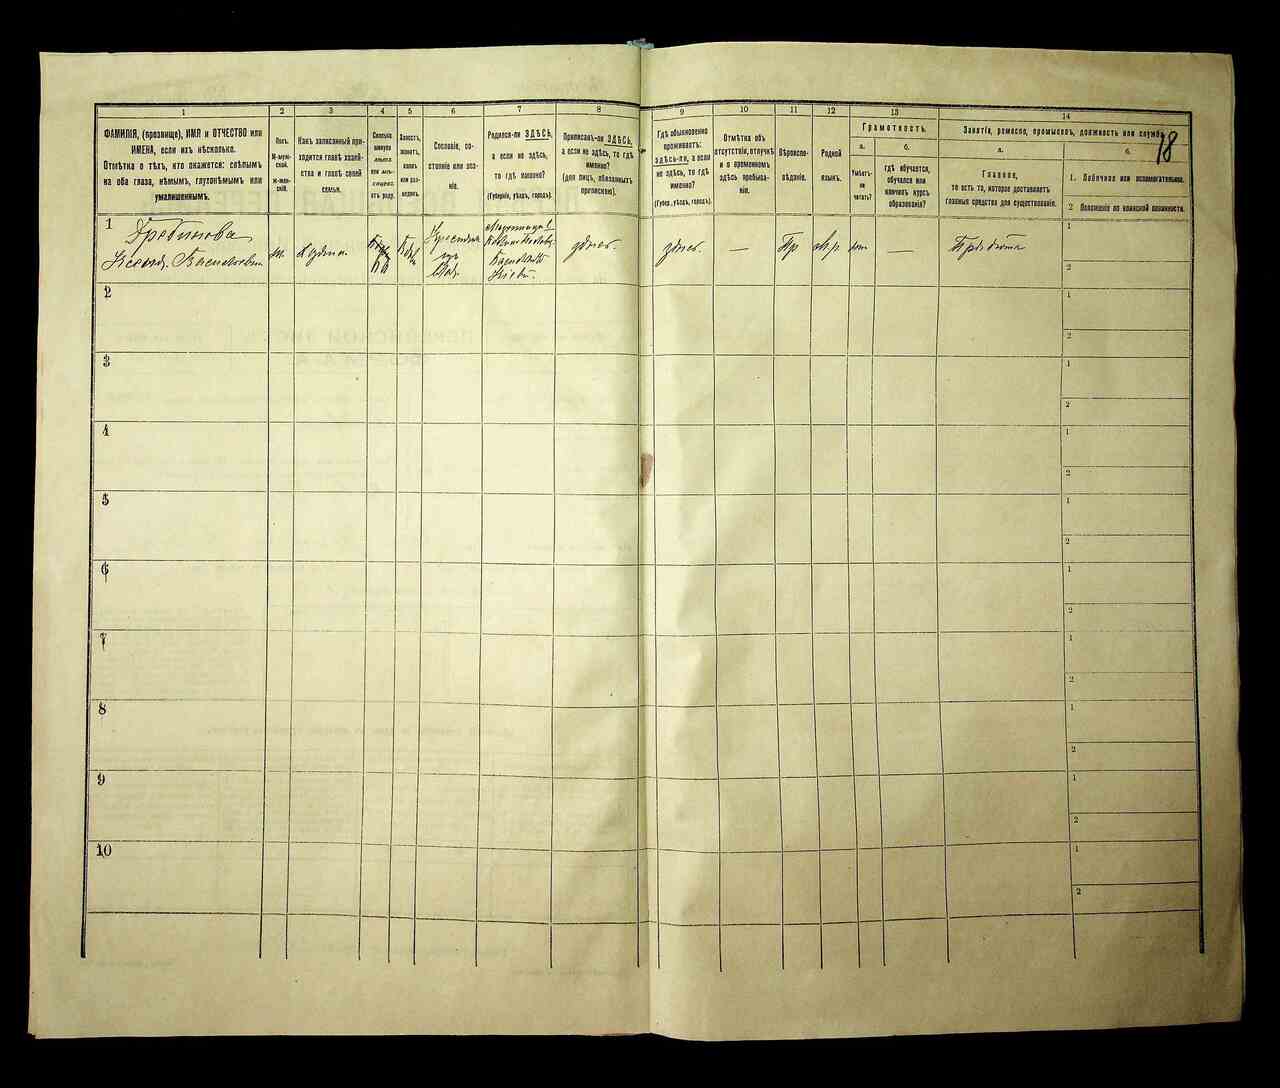 1 2 3 4 5 6 7 8 9 10 11 12 13 14
ФАМИЛІЯ, (прозвище), ИМЯ и ОТЧЕСТВО или
ИМЕНА, если ихъ нѣсколько.
Отмѣтка о тѣхъ, кто окажется: слѣпымъ
на оба глаза, нѣмымъ, глухонѣмымъ или
умалишеннымъ.
Полъ.
М-муж-
ской.
Ж-жен-
скій.
Какъ записанный при-
ходится главѣ хозяй-
ства и главѣ своей
семьи.
Сколько
минуло
лѣтъ
или мѣ-
сяцевъ
отъ роду.
Холостъ,
женатъ,
вдовъ
или раз-
веденъ.
Сословіе, со-
стояніе или зва-
ніе.
Родился-ли ЗДѢСЬ,
а если не здѣсь,
то гдѣ именно?
(Губернія, уѣздъ, городъ).
Приписанъ-ли ЗДѢСЬ,
а если не здѣсь, то гдѣ
именно?
(для лицъ, обязанныхъ
припискою).
Гдѣ обыкновенно
проживаетъ:
ЗДѢСЬ-ли, а если
не здѣсь, то гдѣ
именно?
(Губер., уѣздъ, городъ).
Отмѣтка объ
отсутствіи, отлучкѣ
и о временномъ
здѣсь пребыва-
ніи.
Вѣроиспо-
вѣданіе.
Родной
языкъ.
Грамотность.
а.
Умѣетъ-
ли
читать?
б.
гдѣ обучается,
обучался или
кончилъ курсъ
образованія?
Занятіе, ремесло, промыселъ, должность или служба.
18
а.
Главное,
то есть то, которое доставляетъ
главныя средства для существованія.
б.
1. Побочное или вспомогательное.
2 Положеніе по воинской повинности.
1
Василіевна
ж.
здѣсь.
здѣсь
—
Пр
м.р.
—
1
2
2
1
2
3
1
2
4
1
2
5
1
2
6
1
2
7
1
2
8
1
2
9
1
2
10
1
2